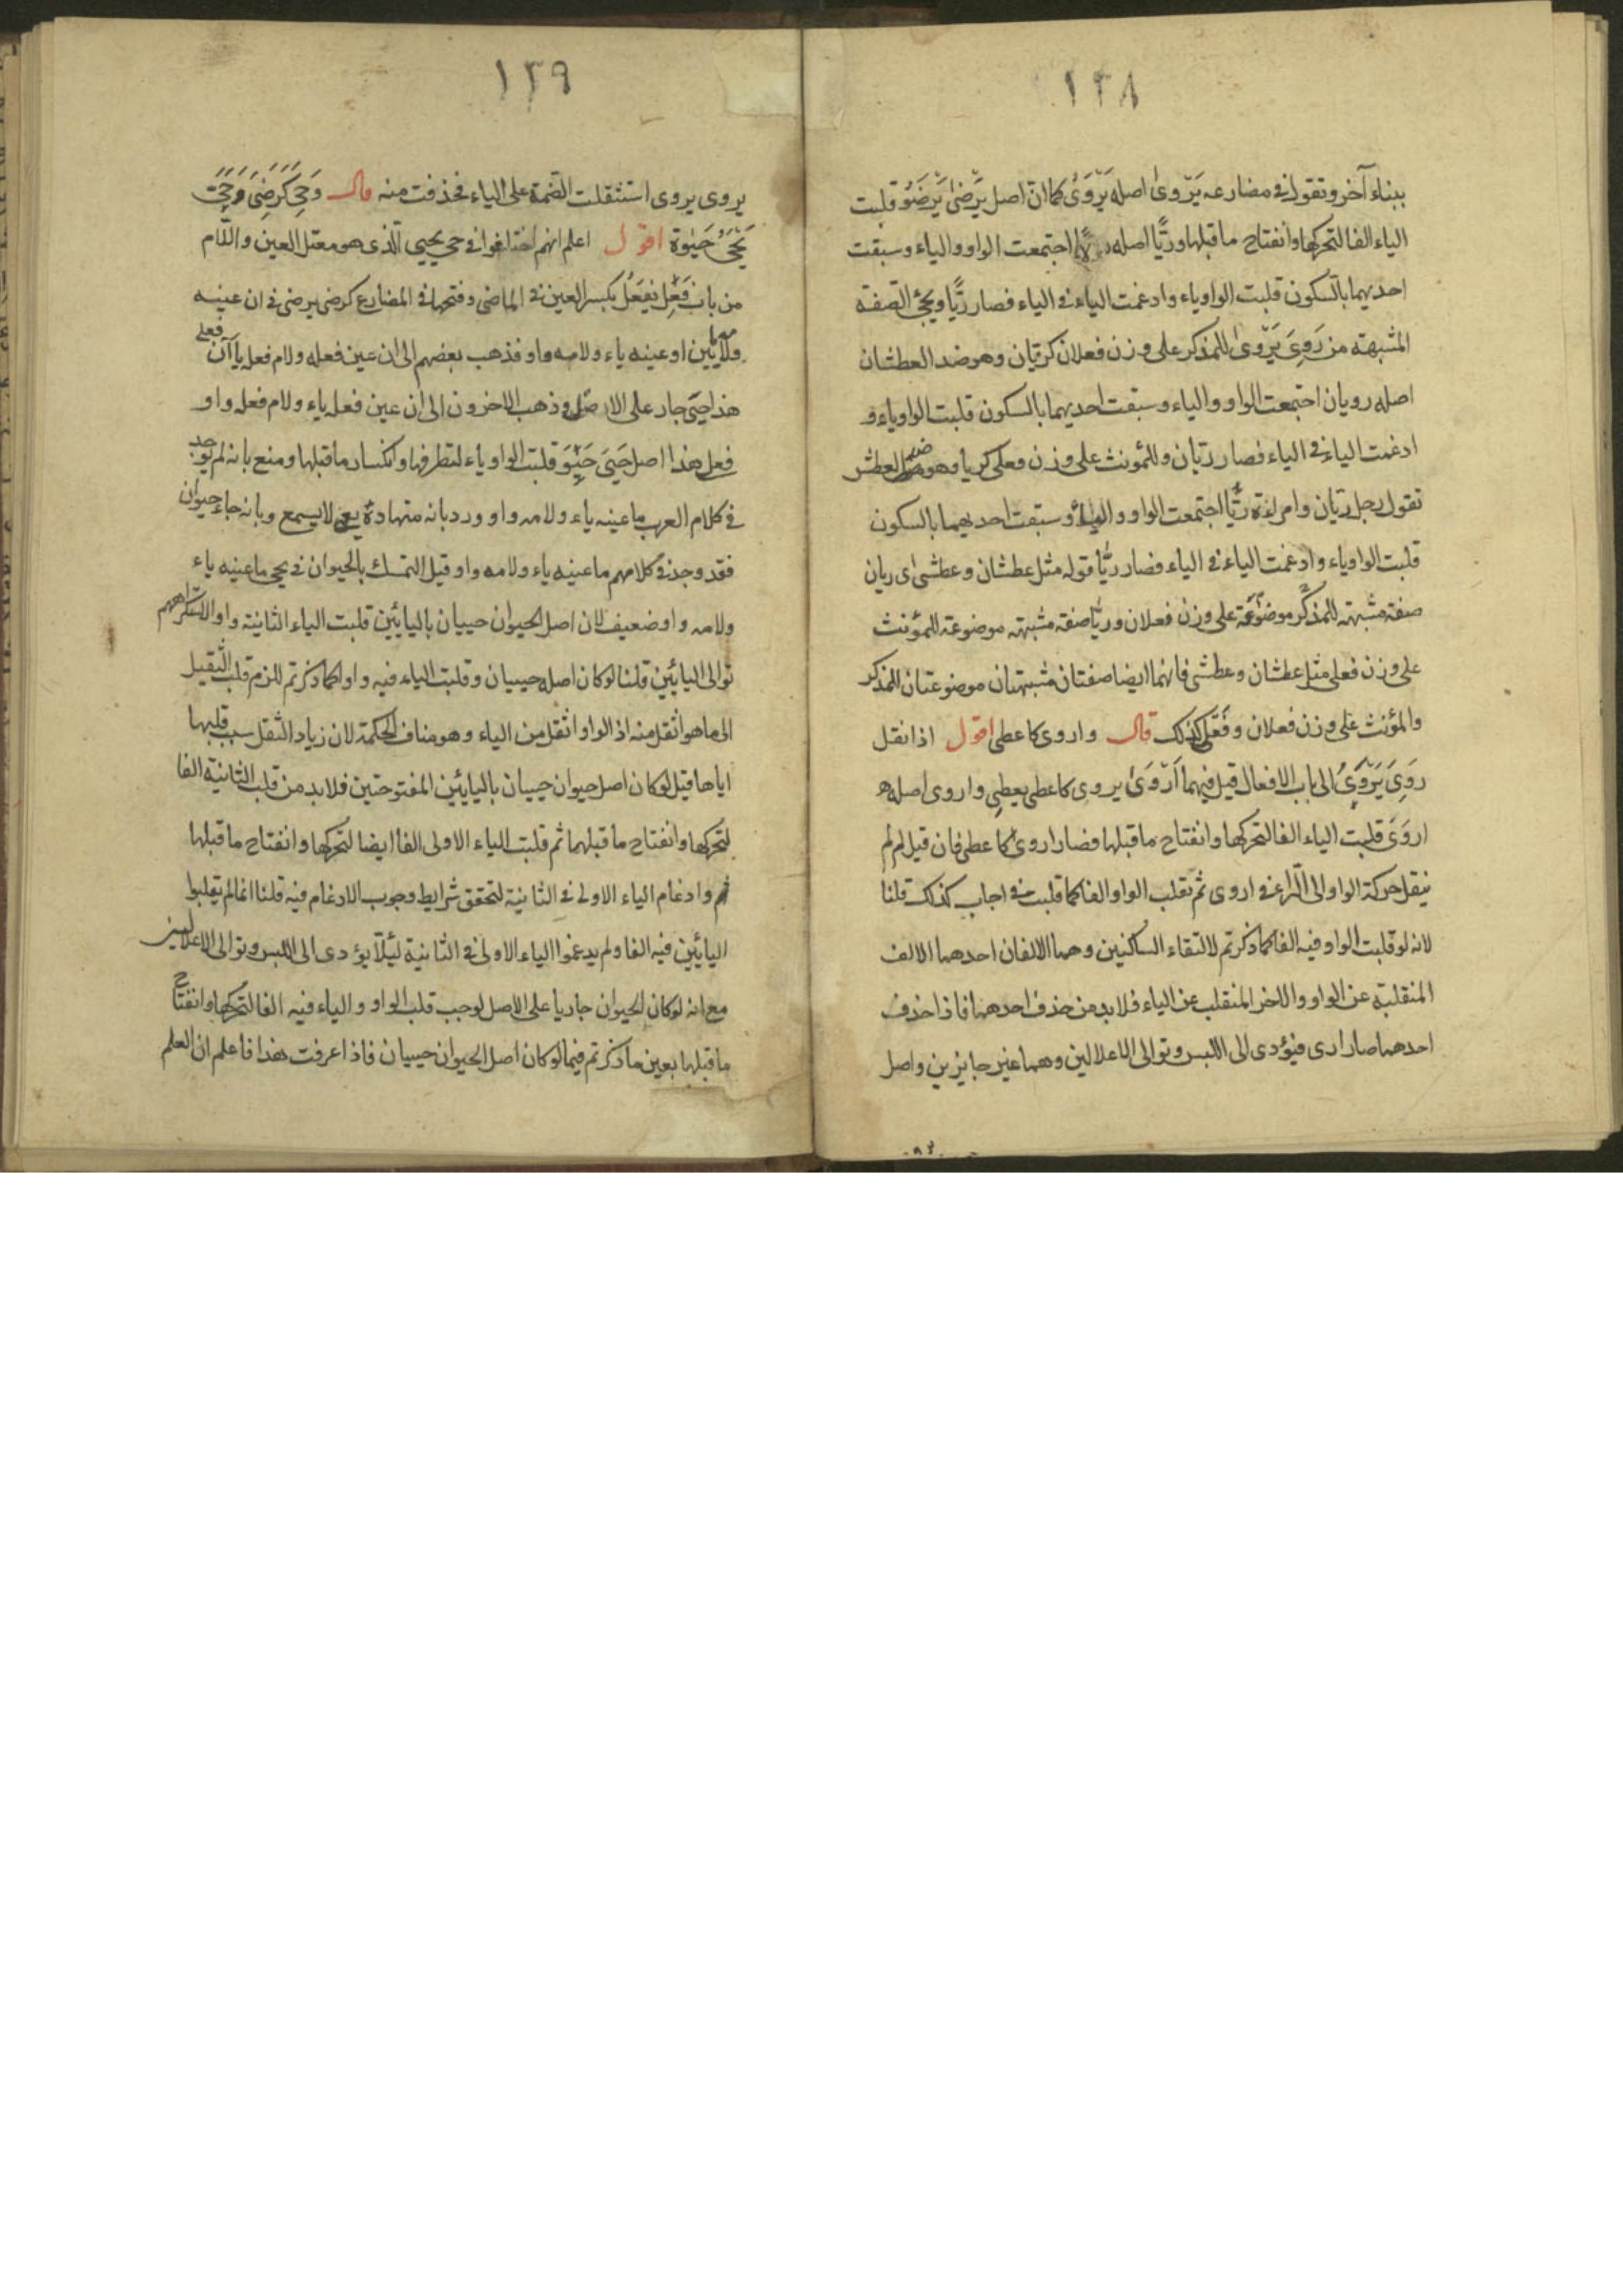 ١٣٨
ببناء آخر وتقول في مضارعه يَرْوىٰ اصله يَرْوَىُ كما انّ اصل يَرْضىٰ يَرْضَىُ قلبت
الياء الفا لتحركها وانفتاح ما قبلها وريًّا اصله اجتمعت الواو والياء وسبقت
احديهما بالسكون قلبت الواو ياء وادغمت الياء في الياء فصار ريًّا ويجئ الصفة
المشبهة من رَوِىَ يَرْوىٰ للمذكر على وزن فعلان كريّان وهو ضد العطشان
اصله رويان اجتمعت الواو والياء وسبقت احديهما بالسكون قلبت الواو ياء و
ادغمت الياء في الياء فصار ريّان وللمؤنث على وزن فعلى كريا وهو ضد العطش
تقول رجل ريّان وامراءة ريّا اجتمعت الواو والياء وسبقت احديهما بالسكون
قلبت الواو ياء وادغمت الياء في الياء فصار ريّا قوله مثل عطشان وعطشى اى ريان
صفة مشبهة للمذكر موضوعة على وزن فعلان وريّا صفة مشبهة موضوعة للمؤنث
على وزن فعلى مثل عطشان وعطشى فانهما ايضا صفتان مشبهتان موضوعتان للمذكر
والمؤنث على وزن فعلان وفَعْلى كذلك قال واروى كاعطى اقول اذا نقل
رَوِىَ يَرْوَىُ الى باب الافعال قيل فيهما اَرْوَىٰ يروى كاعطى يعطى واروى اصله
اروَىَ قلبت الياء الفا لتحركها وانفتاح ما قبلها فصار اروىٰ كاعطى فان قيل لم لم
ينقل حركة الواو الى الراء في اروى ثم تقلب الواو الفا كما قلبت في اجاب كذلك قلنا
لانه لو قلبت الواو فيه الفا كما ذكرتم لالتقاء الساكنين وهما الالفان احدهما الالف
المنقلبة عن الواو والاخر المنقلب عن الياء فلا بد من حذف احدهما فاذا حذف
احدهما صار ارى فيؤدى الى اللبس وتوالى الاعلالين وهما غير جايزين واصل
١٣٩
يروى يروى استثقلت الضمة على الياء فحذفت منه قال وَحَيِىَ كَرَضِىَ وَحَيَّت
يَحْيَىُ حَيٰوة اقول اعلم انهم اختلفوا في حي يحيى الّذى هو معتل العين واللام
من باب فَعِل يَفْعَلُ بكسر العين في الماضى وفتحها في المضارع كرضى يرضى في ان عينه
ولامه يائين او عينه ياء ولامه واو فذهب بعضهم الى ان عين فعله ولام فعله ياآن فعلى
هذا حيى جار على الاصل وذهب الاخرون الى ان عين فعله ياء ولام فعله واو
فعلى هذا اصل حَيِىَ حَيِوَ قلبت الواو ياء لتطرفها وانكسار ما قبلها ومنع بانه لم يوجد
في كلام العرب ما عينه ياء ولامه واو ورد بانه لا يسمع وبانه جاء حيوان
فقد وجد في كلامهم ما عينه ياء ولامه واو قيل التمسك بالحيوان في يحى ما عينه ياء
ولامه واو ضعيف لان اصل الحيوان حييان باليائين قلبت الياء الثانية واوا لاستكراههم
توالى اليائين قلنا لو كان اصله حييان وقلبت الياء فيه واوا كما ذكرتم للزم قلب الثقيل
الى ما هو اثقل منه اذ الواو اثقل من الياء وهو مناف للحكمة لان زياد الثقل سبب قلبها
اياها قيل لو كان اصل حيوان حييان باليائين المفتوحتين فلا بد من قلب الثانية الفا
لتحركها وانفتاح ما قبلهما ثم قلبت الياء الاولى الفا ايضا لتحركها وانفتاح ما قبلها
ثم وادغام الياء الاولى في الثانية لتحقق شرايط وجوب الادغام فيه قلنا انما لم يقلبوا
اليائين فيه الفا ولم يدغموا الياء الاولى في الثانية ليئلّا يؤدى الى اللبس وتوالى الاعلالين
مع انه لو كان الحيوان جاريا على الاصل لوجب قلب الواو والياء فيه الفا لتحركها وانفتاح
ما قبلها بعين ما ذكرتم فيما لو كان اصل الحيوان حييان فاذا عرفت هذا فاعلم ان العلم